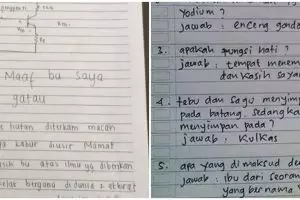 Maaf bu saya
gatau
hutan diterkam macan
kabur diusir Mamat
atas ilmu yg diberikan
berguna didunia & akhirat
yodium?
jawab : enceng gondo
3. apakah fungsi hati?
jawab : tempat menem
dan kasih saya
4. tebu dan sagu menyimp
pada batang. sedangka
menyimpan pada?
jawab : kulkas
5. apa yang dimaksud de
jawab : ibu dari seoran
yang bernama